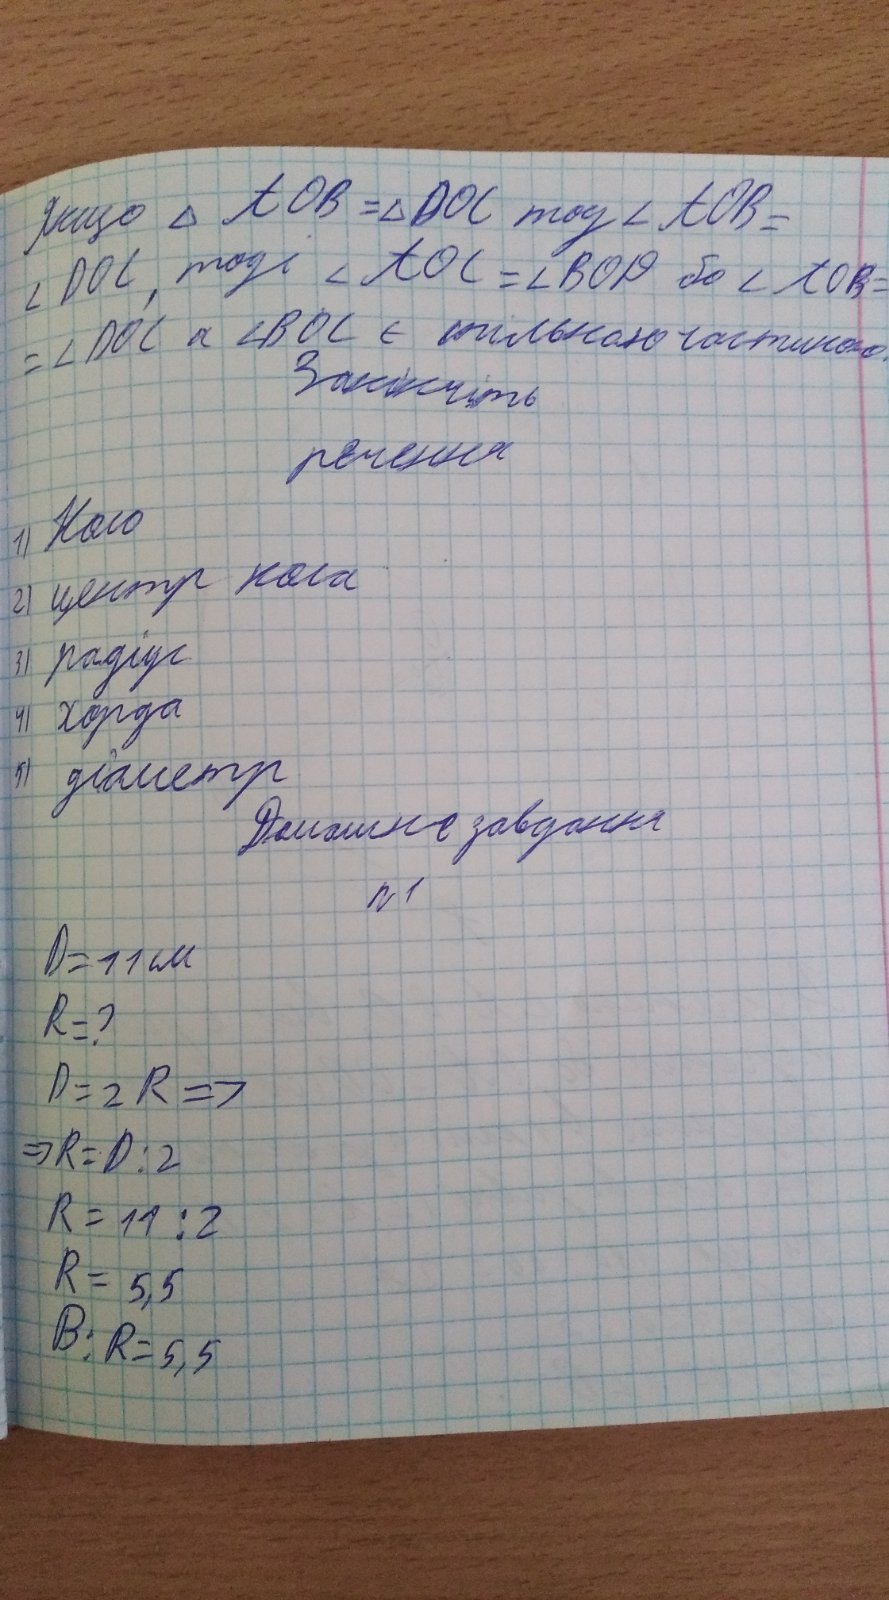 Якщо △ AOB = △ DOC тод ∠ AOB =
∠ DOC, тоді ∠ AOC = ∠ BOD бо ∠ AOB =
= ∠ DOC а ∠ BOC є спільною частиною.
Закінчіть
речення
1) Коло
2) центр кола
3) радіус
4) хорда
5) діаметр
Домашнє завдання
№1
D = 11 см
R = ?
D = 2 R =>
=> R = D : 2
R = 11 : 2
R = 5,5
В: R = 5,5